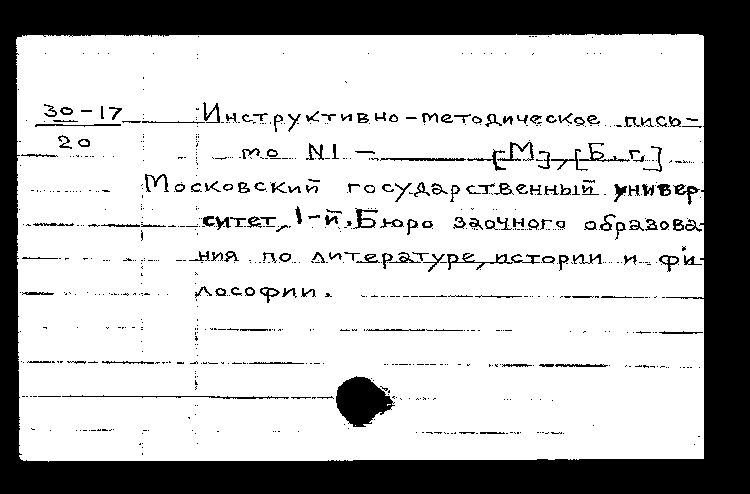 30-17
20
Инструктивно-методическое пись-
мо N1 — [М], [Б. г.]
Московский государственный универ-
ситет, 1-й. Бюро заочного образова-
ния по литературе, истории и фи-
лософии.